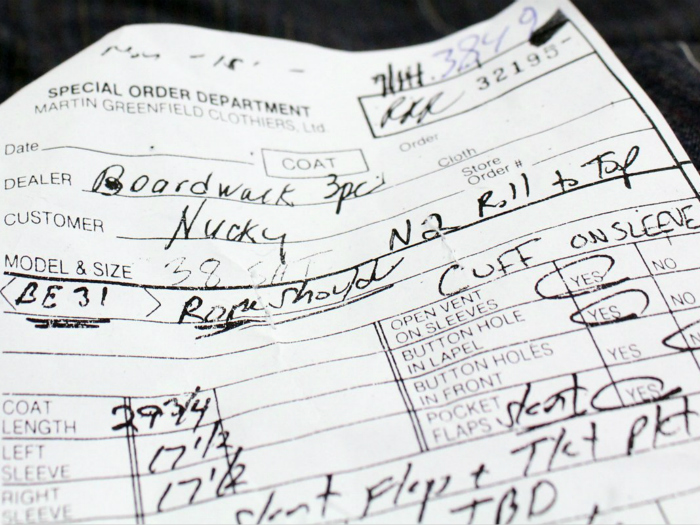 3849
SPECIAL ORDER DEPARTMENT
MARTIN GREENFIELD CLOTHIERS, Ltd.
RXR 32195-
Date
COAT
Order
Cloth
DEALER Boardwalk 3pc
Store Order #
CUSTOMER Nucky
No Roll to Top
MODEL & SIZE 38
BE 31
Rope should
CUFF ON SLEEVE
OPEN VENT ON SLEEVES YES NO
BUTTON HOLE IN LAPEL YES NO
BUTTON HOLES IN FRONT YES
POCKET FLAPS slant YES
COAT LENGTH 29 3/4
LEFT SLEEVE 17 1/2
RIGHT SLEEVE 17 1/2
slant Flap + Tkt Pkt
TBD